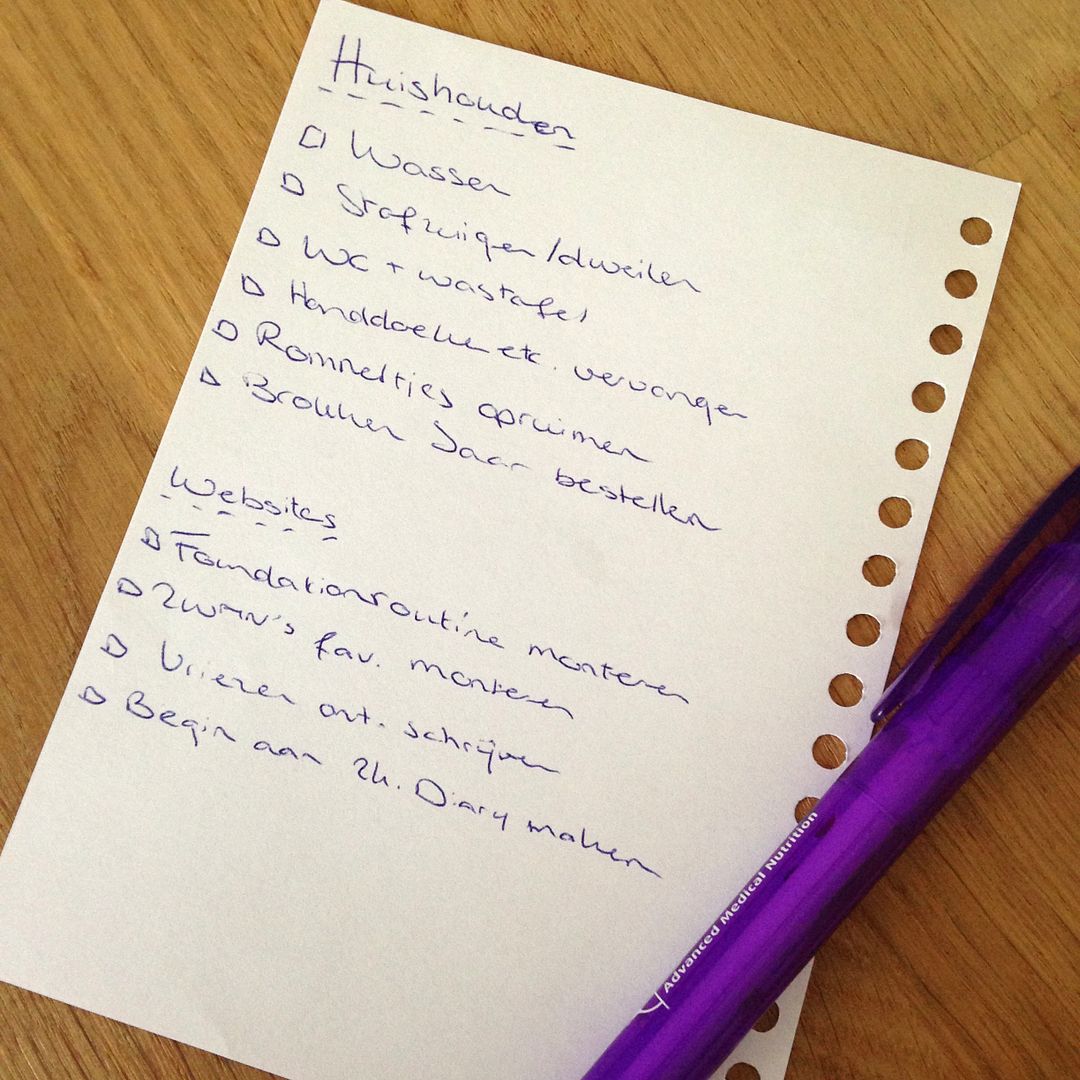 Huishouden
Wassen
Stofzuigen/dweilen
WC + wastafel
Handdoeken etc. vervangen
Rommeltjes opruimen
Brokken Saar bestellen
Websites
Foundationroutine monteren
ZWAN's fav. monteren
Vriezer ont. schrijven
Begin aan zw. Diary maken
Advanced Medical Nutrition